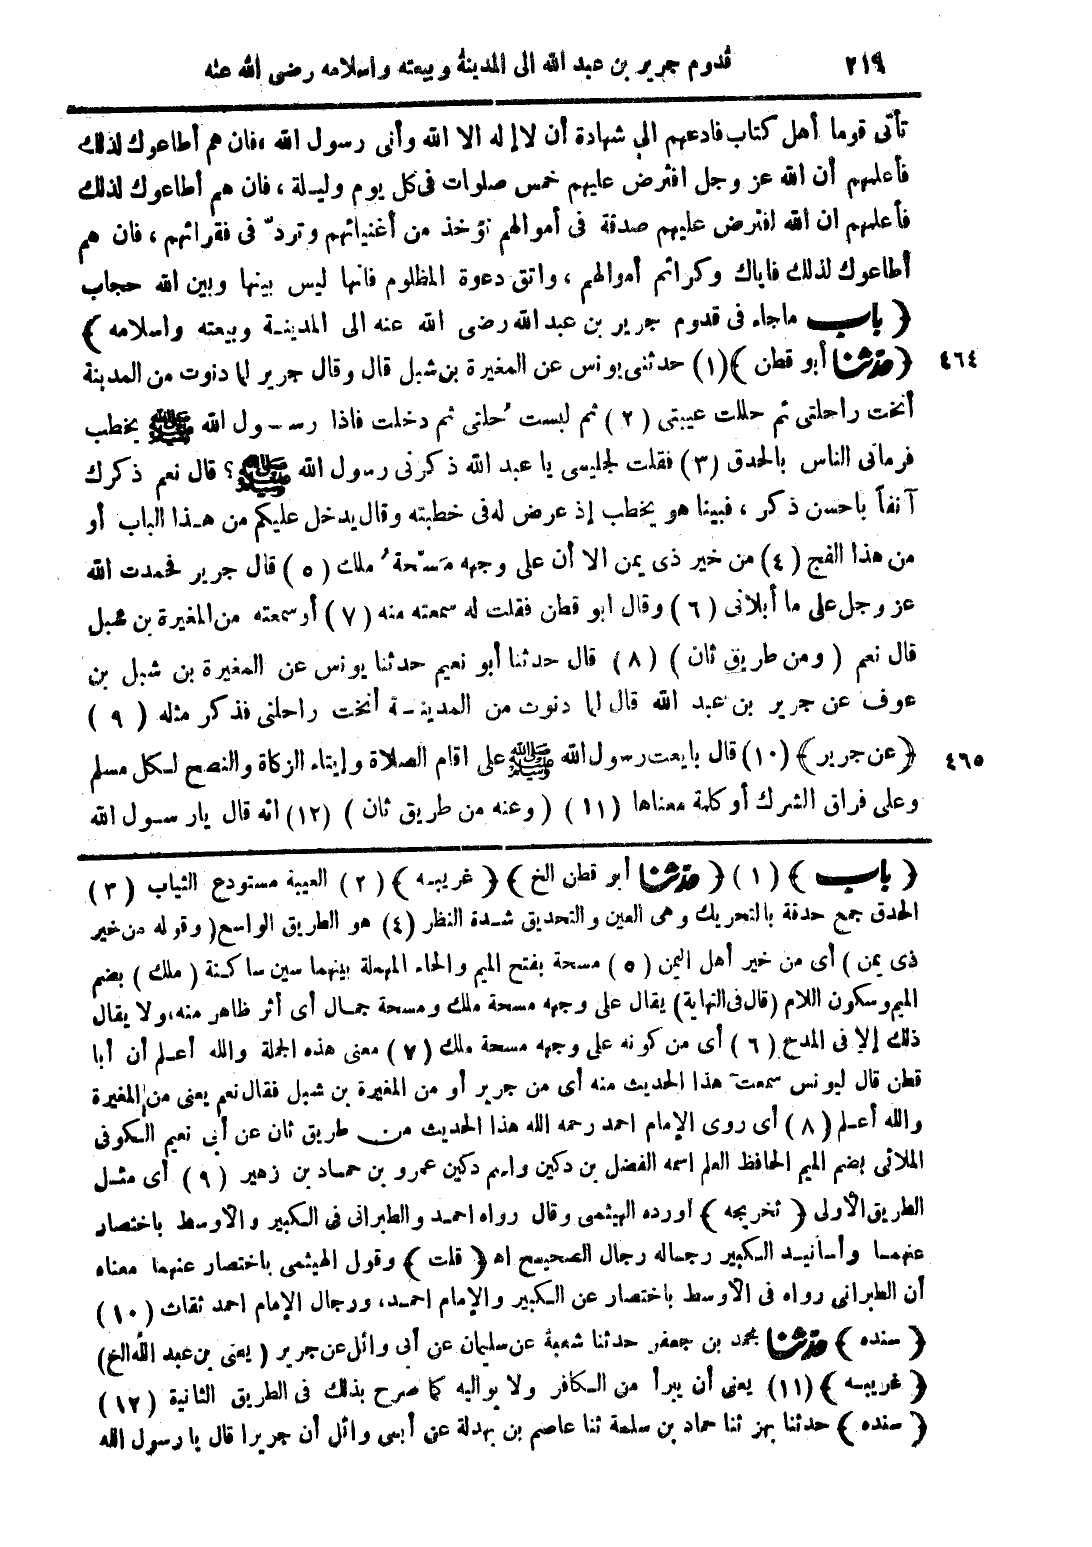 ٢١٩ قدوم جرير بن عبد الله الى المدينة وبيعته واسلامه رضى الله عنه
تأتى قوما أهل كتاب فادعهم الى شهادة أن لا إله الا الله وأنى رسول الله ، فان هم أطاعوك لذلك
فأعلمهم أن الله عز وجل افترض عليهم خمس صلوات فى كل يوم وليلة ، فان هم أطاعوك لذلك
فأعلمهم ان الله افترض عليهم صدقة فى أموالهم تؤخذ من أغنيائهم وتردّ فى فقرائهم ، فان هم
أطاعوك لذلك فاياك وكرائم أموالهم ، واتق دعوة المظلوم فانها ليس بينها وبين الله حجاب
﴿ باب ماجاء فى قدوم جرير بن عبد الله رضى الله عنه الى المدينة وبيعته واسلامه ﴾
٤٦٤ ﴿ حدثنا أبو قطن ﴾ (١) حدثنى يونس عن المغيرة بن شبل قال وقال جرير لما دنوت من المدينة
أنخت راحلتى ثم حللت عيبتى (٢) ثم لبست حُلتى ثم دخلت فاذا رسول الله ﷺ يخطب
فرمانى الناس بالحدق (٣) فقلت لجليسى يا عبد الله ذكرنى رسول الله ﷺ ؟ قال نعم ذكرك
آنفاً باحسن ذكر ، فبينا هو يخطب إذ عرض له فى خطبته وقال يدخل عليكم من هذا الباب أو
من هذا الفج (٤) من خير ذى يمن الا أن على وجهه مَسْحةُ ملك (٥) قال جرير فحمدت الله
عز وجل على ما أبلانى (٦) وقال ابو قطن فقلت له سمعته منه (٧) أو سمعته من المغيرة بن شبل
قال نعم ( ومن طريق ثان ) (٨) قال حدثنا أبو نعيم حدثنا يونس عن المغيرة بن شبل بن
عوف عن جرير بن عبد الله قال لما دنوت من المدينة أنخت راحلتى فذكر مثله (٩)
٤٦٥ ﴿ عن جرير ﴾ (١٠) قال بايعت رسول الله ﷺ على اقام الصلاة وإيتاء الزكاة والنصح لكل مسلم
وعلى فراق الشرك أو كلمة معناها (١١) ( وعنه من طريق ثان ) (١٢) انه قال يا رسول الله
﴿ باب ﴾ (١) ﴿ حدثنا أبو قطن الخ ﴾ ﴿ غريبه ﴾ (٢) العيبة مستودع الثياب (٣)
الحدق جمع حدقة بالتحريك وهى العين والتحديق شدة النظر (٤) هو الطريق الواسع ( وقوله من خير
ذى يمن ) أى من خير أهل اليمن (٥) مسحة بفتح الميم والحاء المهملة بينهما سين ساكنة ( ملك ) بضم
الميم وسكون اللام ( قال فى النهاية ) يقال على وجهه مسحة ملك ومسحة جمال أى أثر ظاهر منه، ولا يقال
ذلك إلا فى المدح (٦) أى من كونه على وجهه مسحة ملك (٧) معنى هذه الجملة والله أعلم أن أبا
قطن قال ليونس سمعت هذا الحديث منه أى من جرير أو من المغيرة بن شبل فقال نعم يعنى من المغيرة
والله أعلم (٨) أى روى الإمام احمد رحمه الله هذا الحديث من طريق ثان عن أبى نعيم الكوفى
الملائى بضم الميم الحافظ العلم اسمه الفضل بن دكين واسم دكين عمرو بن حماد بن زهير (٩) أى مثل
الطريق الأولى ﴿ تخريجه ﴾ أورده الهيثمى وقال رواه احمد والطبرانى فى الكبير والأوسط باختصار
عنهما وأسانيد الكبير رجاله رجال الصحيح اه ﴿ قلت ﴾ وقول الهيثمى باختصار عنهما معناه
أن الطبرانى رواه فى الأوسط باختصار عن الكبير والإمام احمد، ورجال الإمام احمد ثقات (١٠)
﴿ سنده ﴾ حدثنا محمد بن جعفر حدثنا شعبة عن سليمان عن أبى وائل عن جرير ( يعنى بن عبد الله الخ )
﴿ غريبه ﴾ (١١) يعنى أن يبرأ من الكافر ولا يواليه كما صرح بذلك فى الطريق الثانية (١٢)
﴿ سنده ﴾ حدثنا بهز ثنا حماد بن سلمة ثنا عاصم بن بهدلة عن أبى وائل أن جريرا قال يا رسول الله